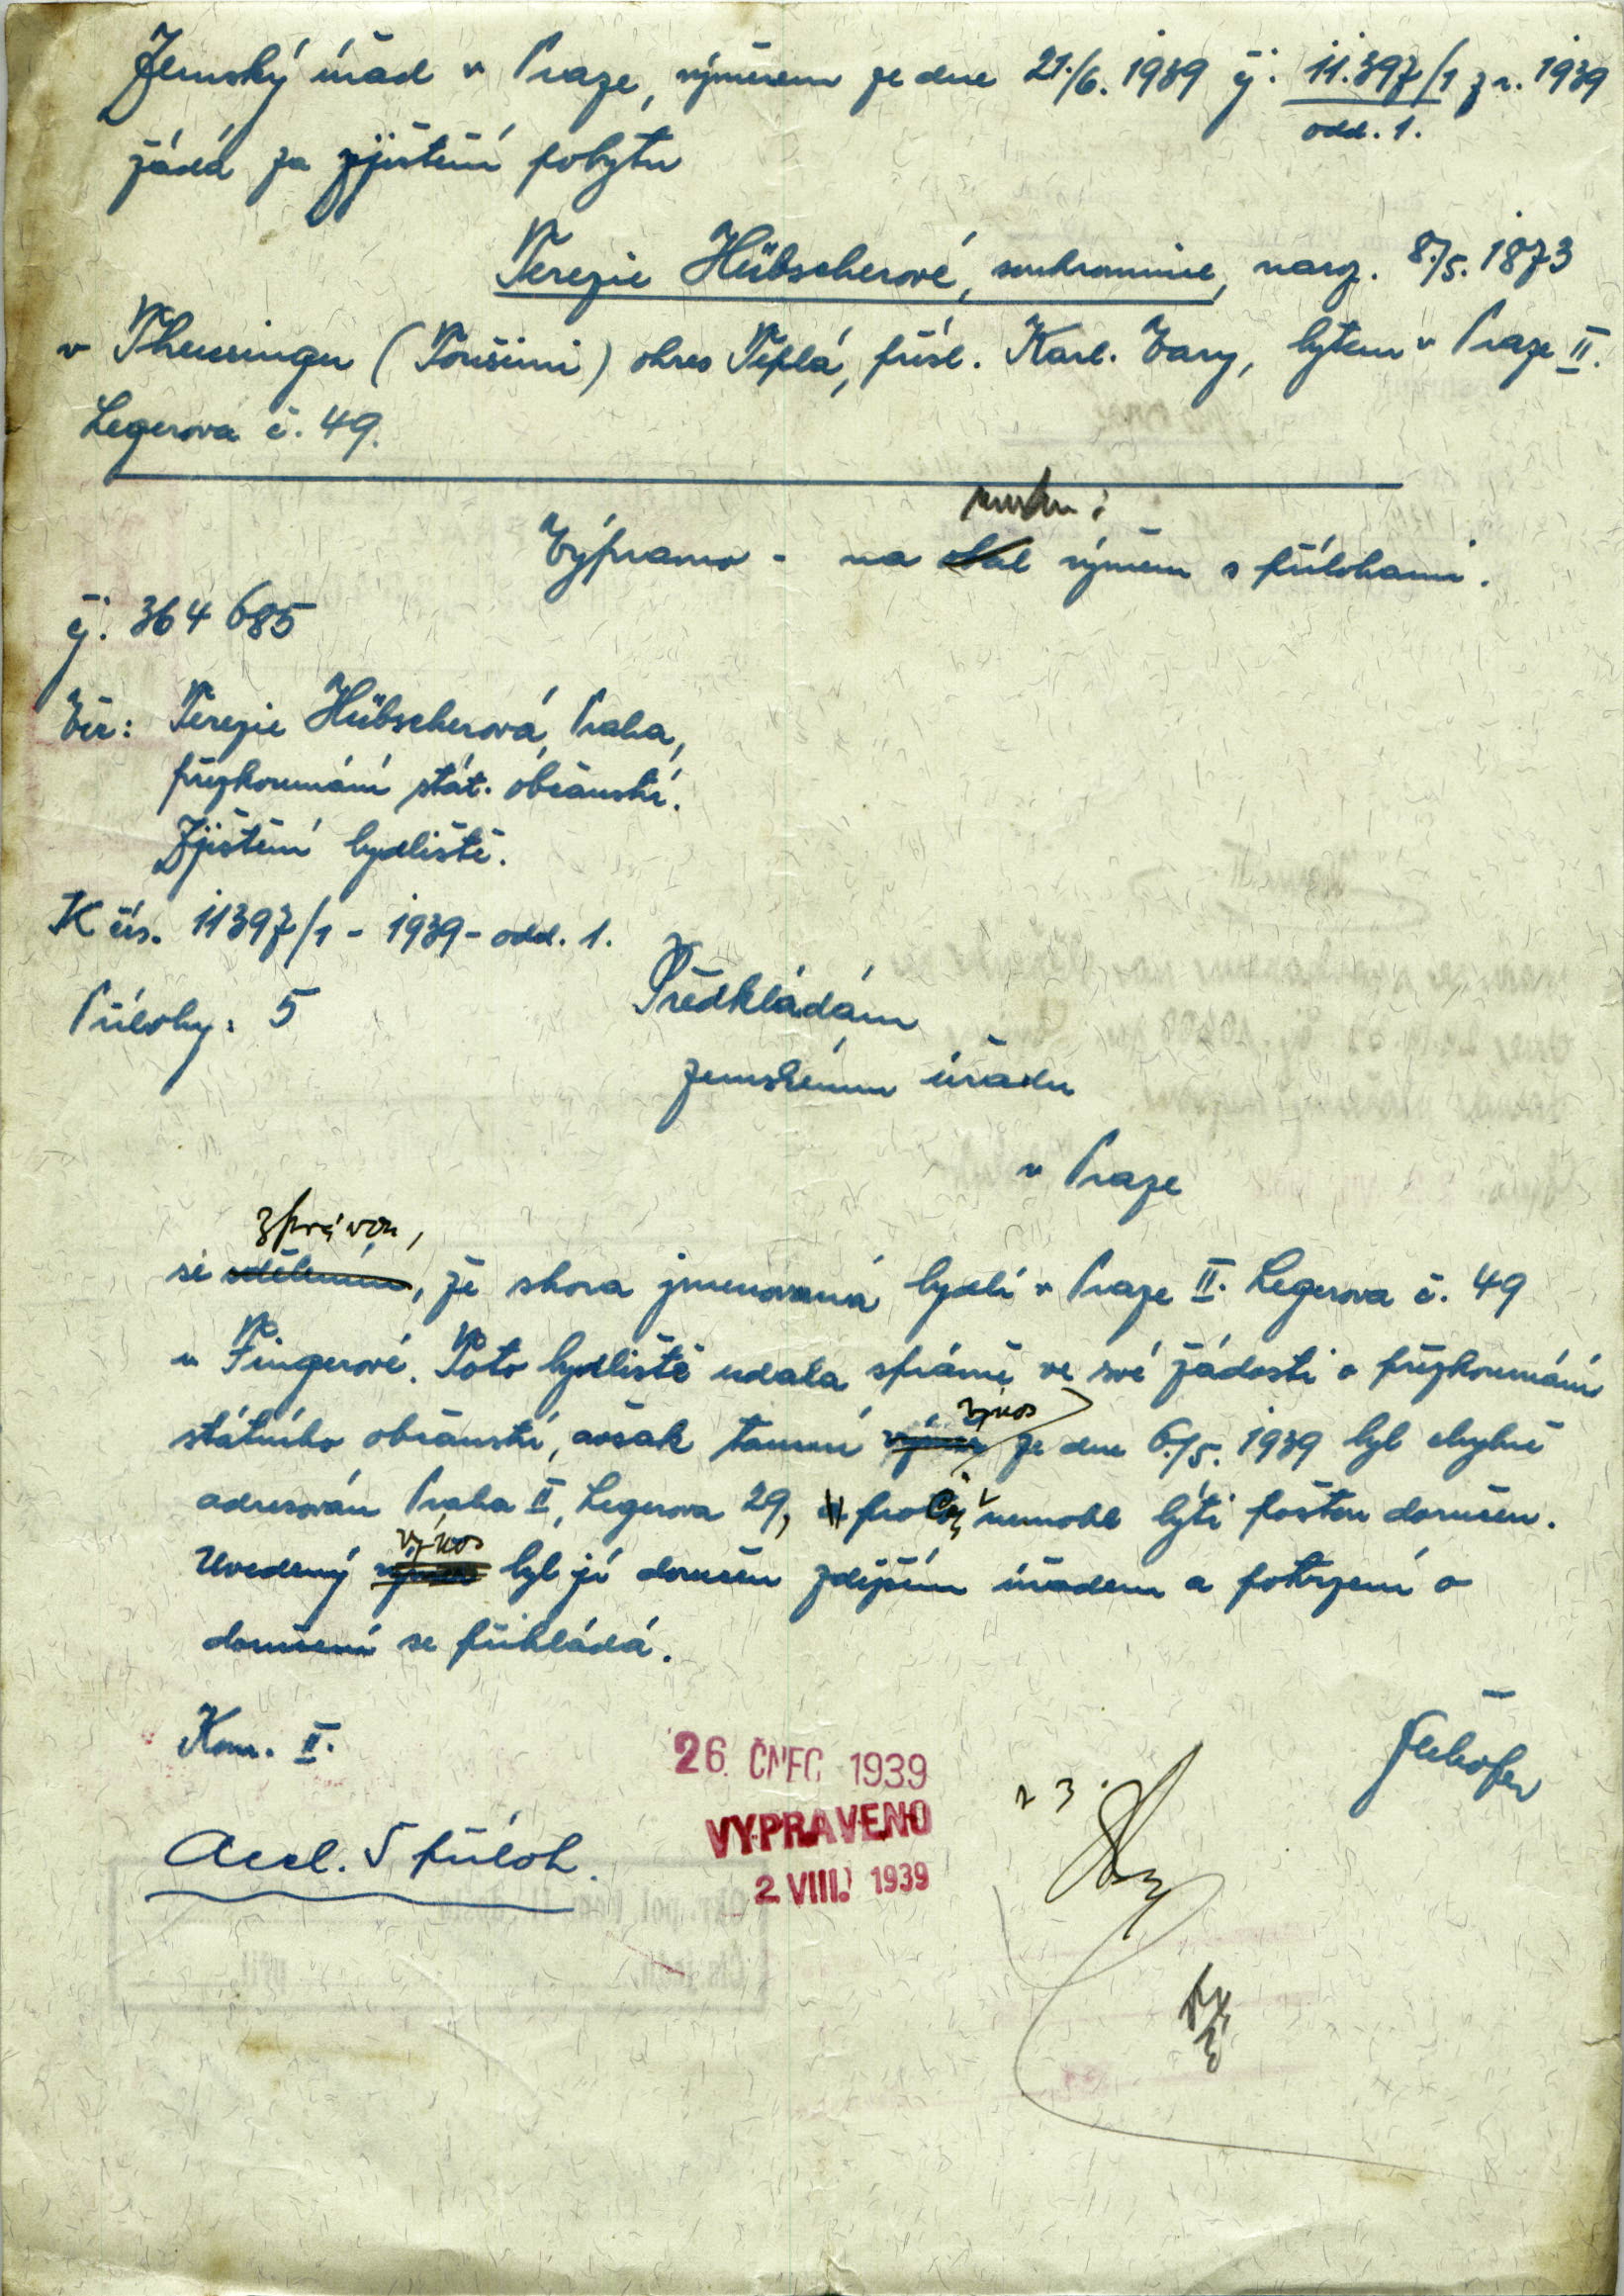 Zemský úřad v Praze, výměrem ze dne 21./6. 1939 čj. 11.397/1 z r. 1939
odd. 1.
žádá za zjištění pobytu
Terezie Hübscherové, soukromnice, naroz. 8./5. 1873
v Theusingu (Toužimi) okres Teplá, přísl. Karl. Vary, bytem v Praze II.
Legerova č. 49.
Výpravo - na výměru s přílohami.
čj. 364 685
Věc: Terezie Hübscherová, Praha,
přezkoumání stát. občanství.
Zjištění bydliště.
K čís. 11397/1 - 1939 - odd. 1.
Přílohy: 5
Předkládám
zemskému úřadu
v Praze
zprávou,
se sdělením, že shora jmenovaná bydlí v Praze II. Legerova č. 49
u Fingerové. Toto bydliště udala správně ve své žádosti o přezkoumání
výnos
státního občanství, avšak tamní výměr ze dne 6./5. 1939 byl chybně
adresován Praha II, Legerova 29, a proč nemohl býti poštou doručen.
výnos
Uvedený výměr byl jí doručen zdejším úřadem a potvrzení o
doručení se přikládá.
Kom. II.
26. ČNEC 1939
VYPRAVENO
2. VIII. 1939
Accl. 5 příloh.